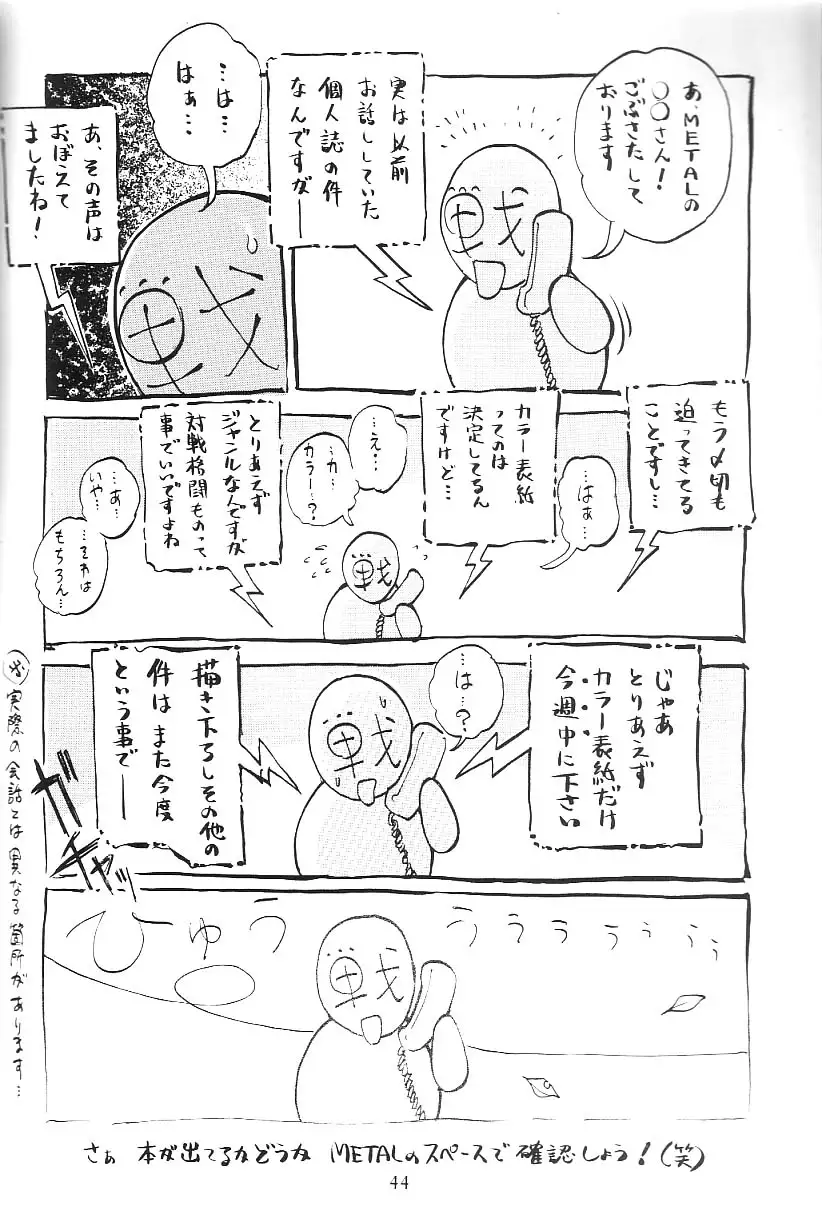 あ、METALの
○○さん!
ごぶさたして
おります
実は以前
お話ししていた
個人誌の件
なんですがー
戦
…は…
はぁ…
あ、その声は
おぼえて
ましたね!
戦
もう〆切も
迫ってきてる
ことですし…
…はぁ…
カラー表紙
ってのは
決定してるん
ですけど…
…え…
…カ…
カラー…?
とりあえず
ジャンルなんですが
対戦格闘ものって
事でいいですよね
…あ…
いや…
…それは
もちろん…
戦
じゃあ
とりあえず
カラー表紙だけ
今週中に下さい
…は?
描き下ろしその他の
件はまた今度
という事でー
戦
ガチャッ
ひゅうううううううう
戦
※実際の会話とは異なる箇所があります…
さぁ 本が出てるかどうか METALのスペースで確認しよう!(笑)
44